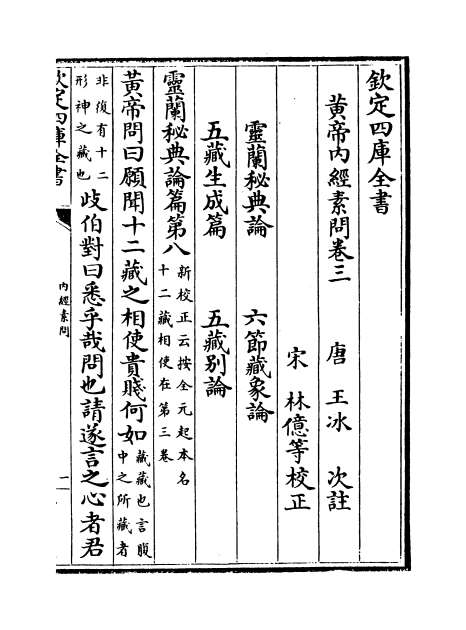 欽定四庫全書
黃帝內經素問卷三　唐　王冰　次註
宋　林億等校正
靈蘭秘典論　六節藏象論
五藏生成篇　五藏別論
靈蘭秘典論篇第八新校正云按全元起本名十二藏相使在第三卷
黃帝問曰願聞十二藏之相使貴賤何如藏藏也言腹中之所藏者
非復有十二形神之藏也歧伯對曰悉乎哉問也請遂言之心者君
欽定四庫全書
內經素問